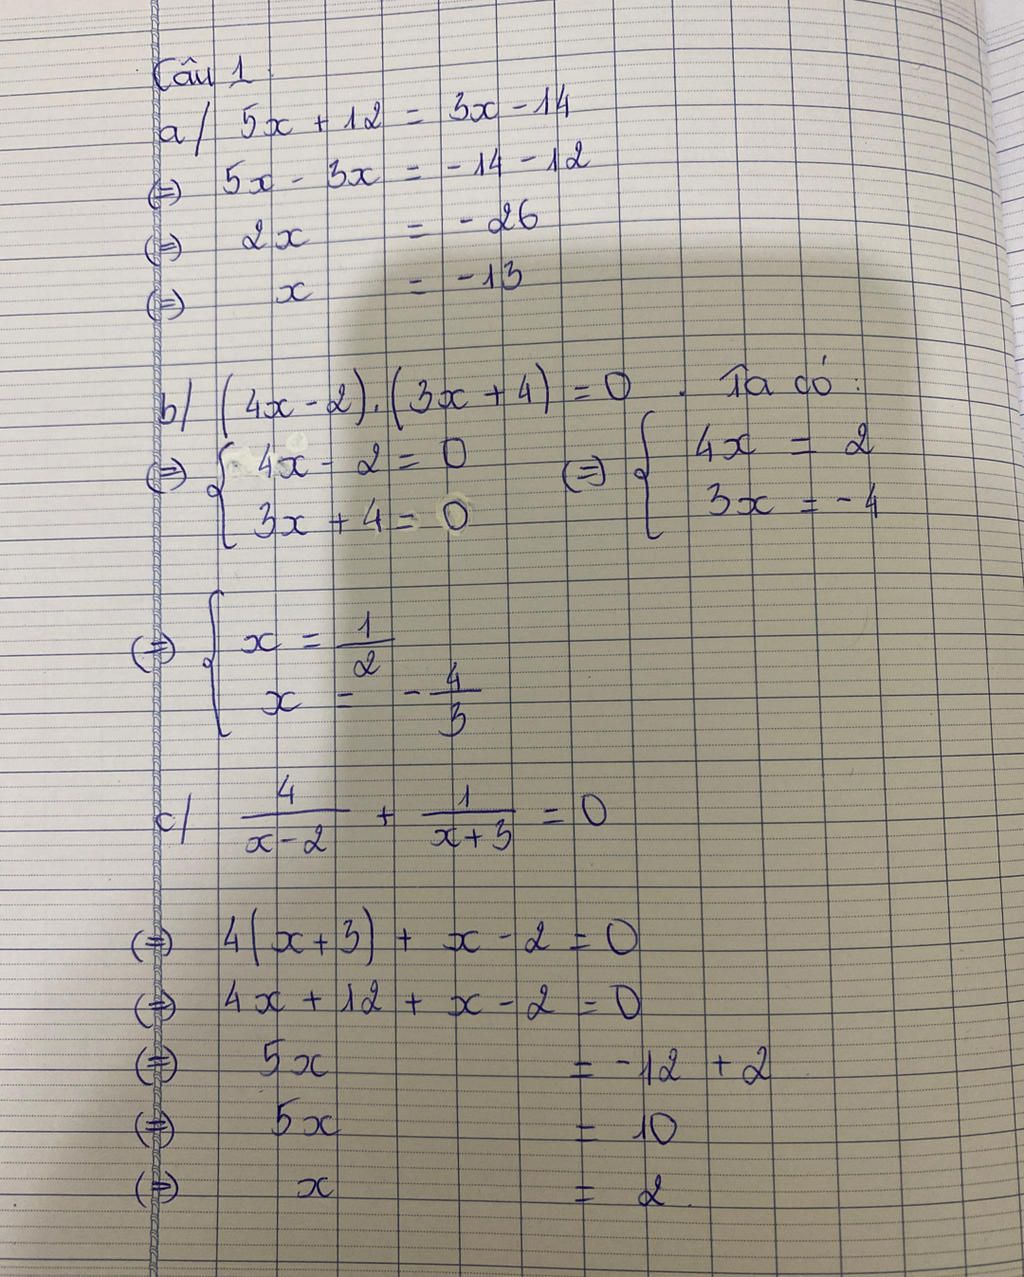 Câu 1:
a/ 5x + 12 = 3x - 14
(=) 5x - 3x = -14 - 12
(=) 2x = -26
(=) x = -13
b/ (4x - 2).(3x + 4) = 0. Ta có:
(=) { 4x - 2 = 0 (=) { 4x = 2
3x + 4 = 0 3x = -4
(=) { x = 1/2
x = -4/3
c/ 4/(x - 2) + 1/(x + 3) = 0
(=) 4(x + 3) + x - 2 = 0
(=) 4x + 12 + x - 2 = 0
(=) 5x = -12 + 2
(=) 5x = 10
(=) x = 2.